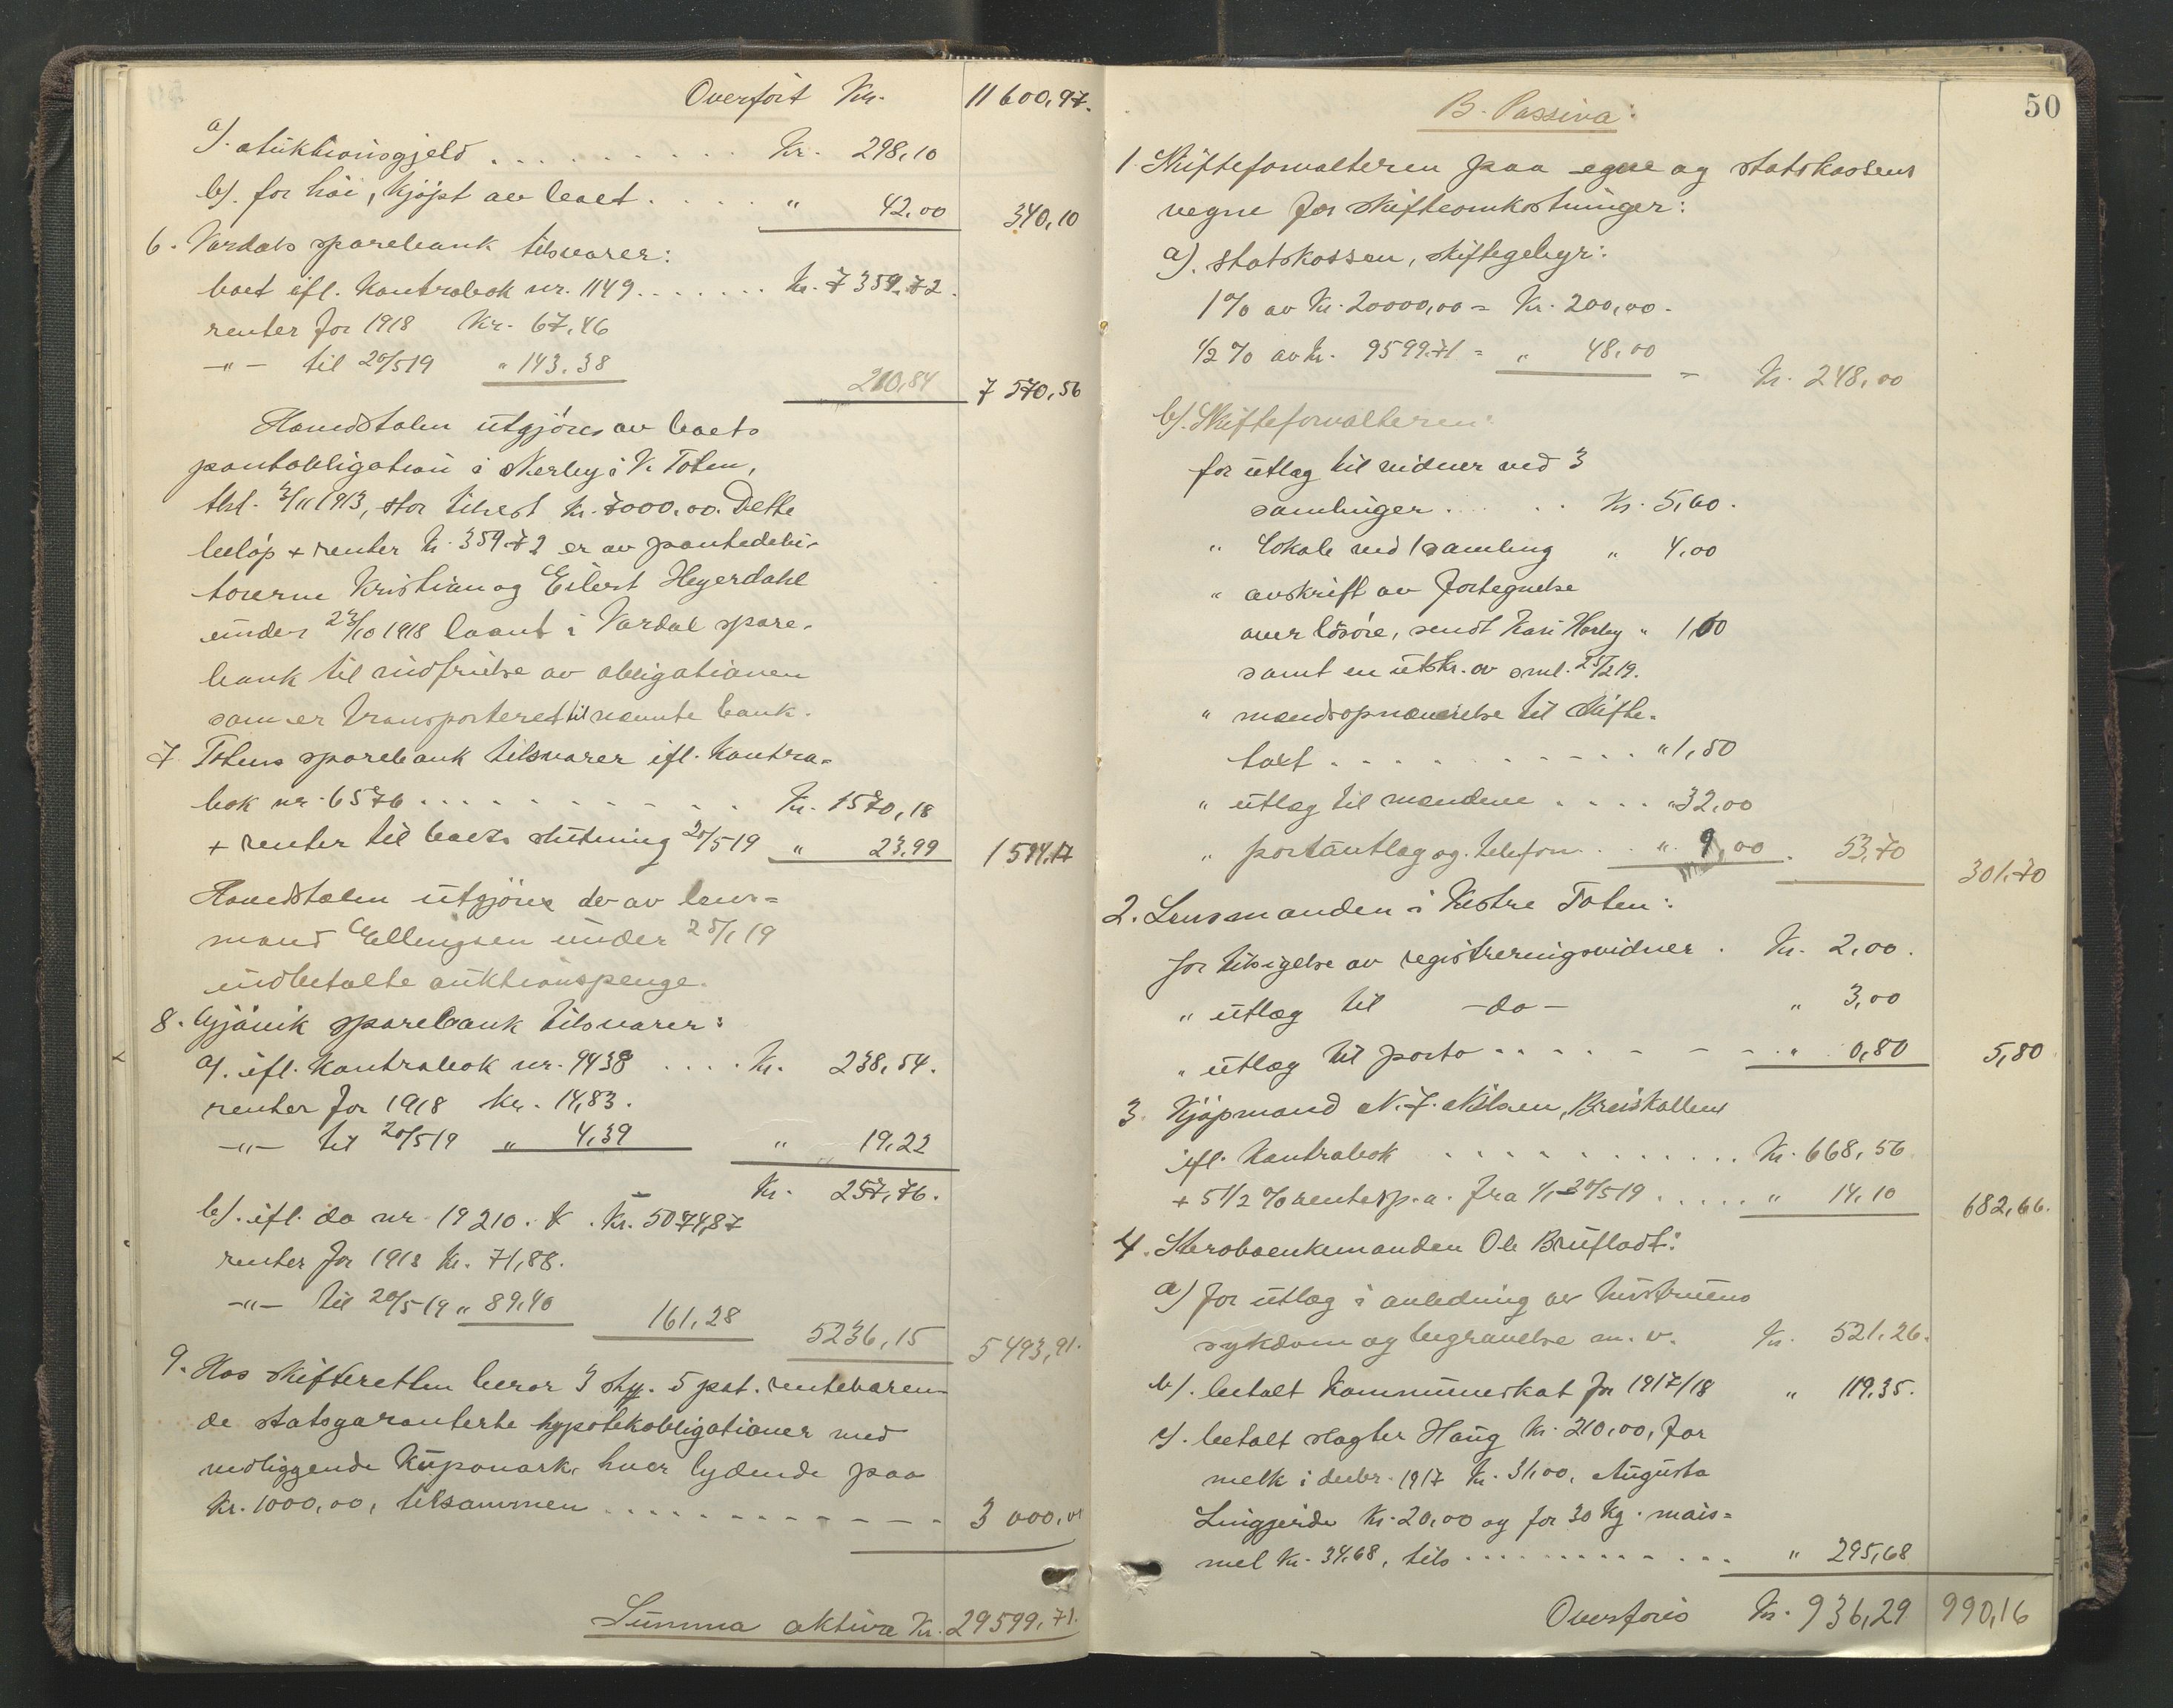 Overført Kr. 11600,97.
a). auktionsgjeld . . . . . . . . . . Kr. 298,10
b). for höi, kjøpt av boet . . . . . " 42,00 340,10
6. Vardals sparebank tilsvarer:
boet ifl. Kontrabok nr. 1149 . . . . . . . Kr. 7359.72.
renter for 1918 Kr. 67,46
-"- til 20/5 19 " 143.38 210,84 7570,56
Hovedstolen utgjöres av boets
pantobligation i Skerby i V. Toten,
tlst. 3/11 1913, stor tilrest kr. 7000.00. Dette
belöp + renter kr. 359.72 er av pantedebi-
torerne Kristian og Eilert Heyerdahl
under 23/10 1918 laant i Vardal spare-
bank til indfrielse av obligationen
som er transporteret til nævnte bank.
7. Totens sparebank tilsvarer ifl. kontra-
bok nr. 6576 . . . . . . . . . . . Kr. 1570,18
+ renter til boets slutning 20/5 19 " 23,99 1594,17
Hovedstolen utgjöres der av lens-
mand Ellingsen under 25/1 19
indbetalte auktionspenge.
8. Gjövik sparebank tilsvarer:
a). ifl. kontrabok nr. 9438 . . . . Kr. 238,54.
renter for 1918 kr. 14,83.
-"- til 20/5 19 " 4,39 " 19,22
Kr. 257,76.
b). ifl. do nr. 19210. Kr. 5074,87
renter for 1918 Kr. 71,88.
-"- til 20/5 19 " 89,40 161,28 5236,15 5493,91.
9. Hos skifteretten beror 3 stk. 5 pct. rentebæren-
de statsgaranterte hypotekobligationer med
vedliggende Kuponark, hver lydende paa
Kr. 1000,00, tilsammen . . . . . . . . . . . . 3000,00
Summa aktiva Kr. 29599,71.
50
B. Passiva:
1 Skifteforvalteren paa egne og statskassens
vegne for skifteomkostninger:
a). Statskassen, skiftegebyr:
1% av Kr. 20000,00 = Kr. 200,00.
1/2% av Kr. 9599.71 = " 48,00 = Kr. 248,00
b). Skifteforvalteren:
for utlæg til vidner ved 3
samlinger . . . . . Kr. 5,60.
" Lokale ved 1 samling " 4,00
" avskrift av fortegnelse
over lösöre, sendt Kari Horby " 1,60
samt en utskr. av sml. 25/2 19.
" mandsopnævnelse til skifte-
taxt . . . . . . . . . . . " 1,50
" utlæg til mændene . . . . " 32,00
" portoutlæg og telefon . . " 9,00 53,70 301.70
2. Lensmanden i Vestre Toten:
for tilsigelse av registreringsvidner . Kr. 2,00.
" utlæg til -do- " 3,00
" utlæg til porto . . . . . . . . " 0,80 5,80
3. Kjøpmand N. J. Nilsen, Breiskallen
ifl. kontrabok . . . . . . . . . . . Kr. 668,56
+ 5 1/2 % rente p.a. fra 1/1-20/5 19 . . . . . " 14,10 682,66.
4. Skraboenkemanden Ole Brufladt:
a) for utlæg i anledning av hustruens
sykdom og begravelse m. v. Kr. 521,26.
b). betalt Kommuneskat for 1917/18 " 119,35.
c). betalt slagter Haug Kr. 210,00, for
melk i decbr. 1917 kr. 31,00, Augusta
Linggjerde Kr. 20,00 og for 30 Kg. mais-
mel kr. 34,68, tils . . . . . . . . . . . " 295,68
Overføres Kr. 936,29 990,16